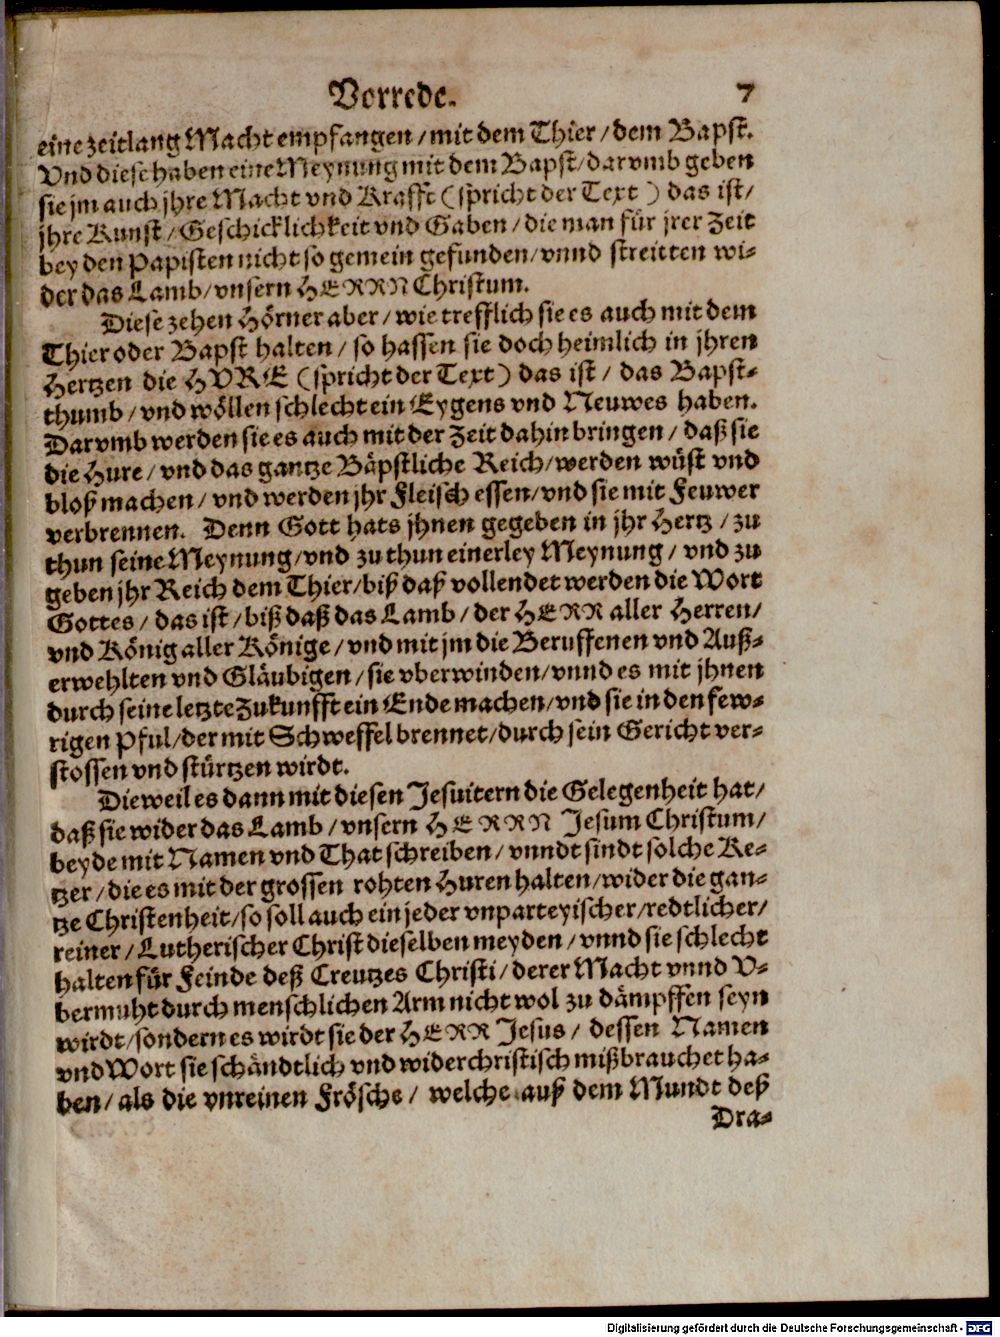 Vorrede. 7
eine zeitlang Macht empfangen / mit dem Thier / dem Bapst.
Vnd diese haben eine Meynung mit dem Bapst / darvmb geben
sie jm auch jhre Macht vnd Krafft (spricht der Text) das ist /
jhre Kunst / Geschicklichkeit vnd Gaben / die man für jrer Zeit
bey den Papisten nicht so gemein gefunden / vnnd streitten wi-
der das Lamb / vnsern HERRN Christum.
Diese zehen Hörner aber / wie trefflich sie es auch mit dem
Thier oder Bapst halten / so hassen sie doch heimlich in jhren
Hertzen die HVRE (spricht der Text) das ist / das Bapst-
thumb / vnd wöllen schlecht ein Eygens vnd Neuwes haben.
Darvmb werden sie es auch mit der Zeit dahin bringen / daß sie
die Hure / vnd das gantze Bäpstliche Reich / werden wüst vnd
bloß machen / vnd werden jhr Fleisch essen / vnd sie mit Feuwer
verbrennen. Denn Gott hats jhnen gegeben in jhr Hertz / zu
thun seine Meynung / vnd zu thun einerley Meynung / vnd zu
geben jhr Reich dem Thier / biß daß vollendet werden die Wort
Gottes / das ist / biß daß das Lamb / der HERR aller Herren /
vnd König aller Könige / vnd mit jm die Beruffenen vnd Auß-
erwehlten vnd Gläubigen / sie vberwinden / vnnd es mit jhnen
durch seine letzte Zukunfft ein Ende machen / vnd sie in den few-
rigen Pful / der mit Schweffel brennet / durch sein Gericht ver-
stossen vnd stürtzen wirdt.
Dieweil es dann mit diesen Jesuitern die Gelegenheit hat /
daß sie wider das Lamb / vnsern HERRN Jesum Christum /
beyde mit Namen vnd That schreiben / vnndt sindt solche Ke-
tzer / die es mit der grossen rohten Huren halten / wider die gan-
tze Christenheit / so soll auch ein jeder vnparteyischer / redtlicher /
reiner / Lutherischer Christ dieselben meyden / vnnd sie schlecht
halten für Feinde deß Creutzes Christi / derer Macht vnnd V-
bermuht durch menschlichen Arm nicht wol zu dämpffen seyn
wirdt / sondern es wirdt sie der HERR Jesus / dessen Namen
vnd Wort sie schändtlich vnd widerchristisch mißbrauchet ha-
ben / als die vnreinen Frösche / welche auß dem Mundt deß
Dra-
Digitalisierung gefördert durch die Deutsche Forschungsgemeinschaft - DFG